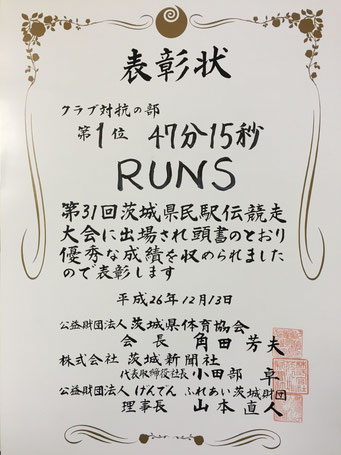 表彰状
クラブ対抗の部
第1位 47分15秒
RUNS
第31回茨城県民駅伝競走
大会に出場され頭書のとおり
優秀な成績を収められました
ので表彰します
平成26年12月13日
公益財団法人 茨城県体育協会
会長 角田芳夫
株式会社 茨城新聞社
代表取締役社長 小田部 卓
公益財団法人 げんでん ふれあい茨城財団
理事長 山本直人